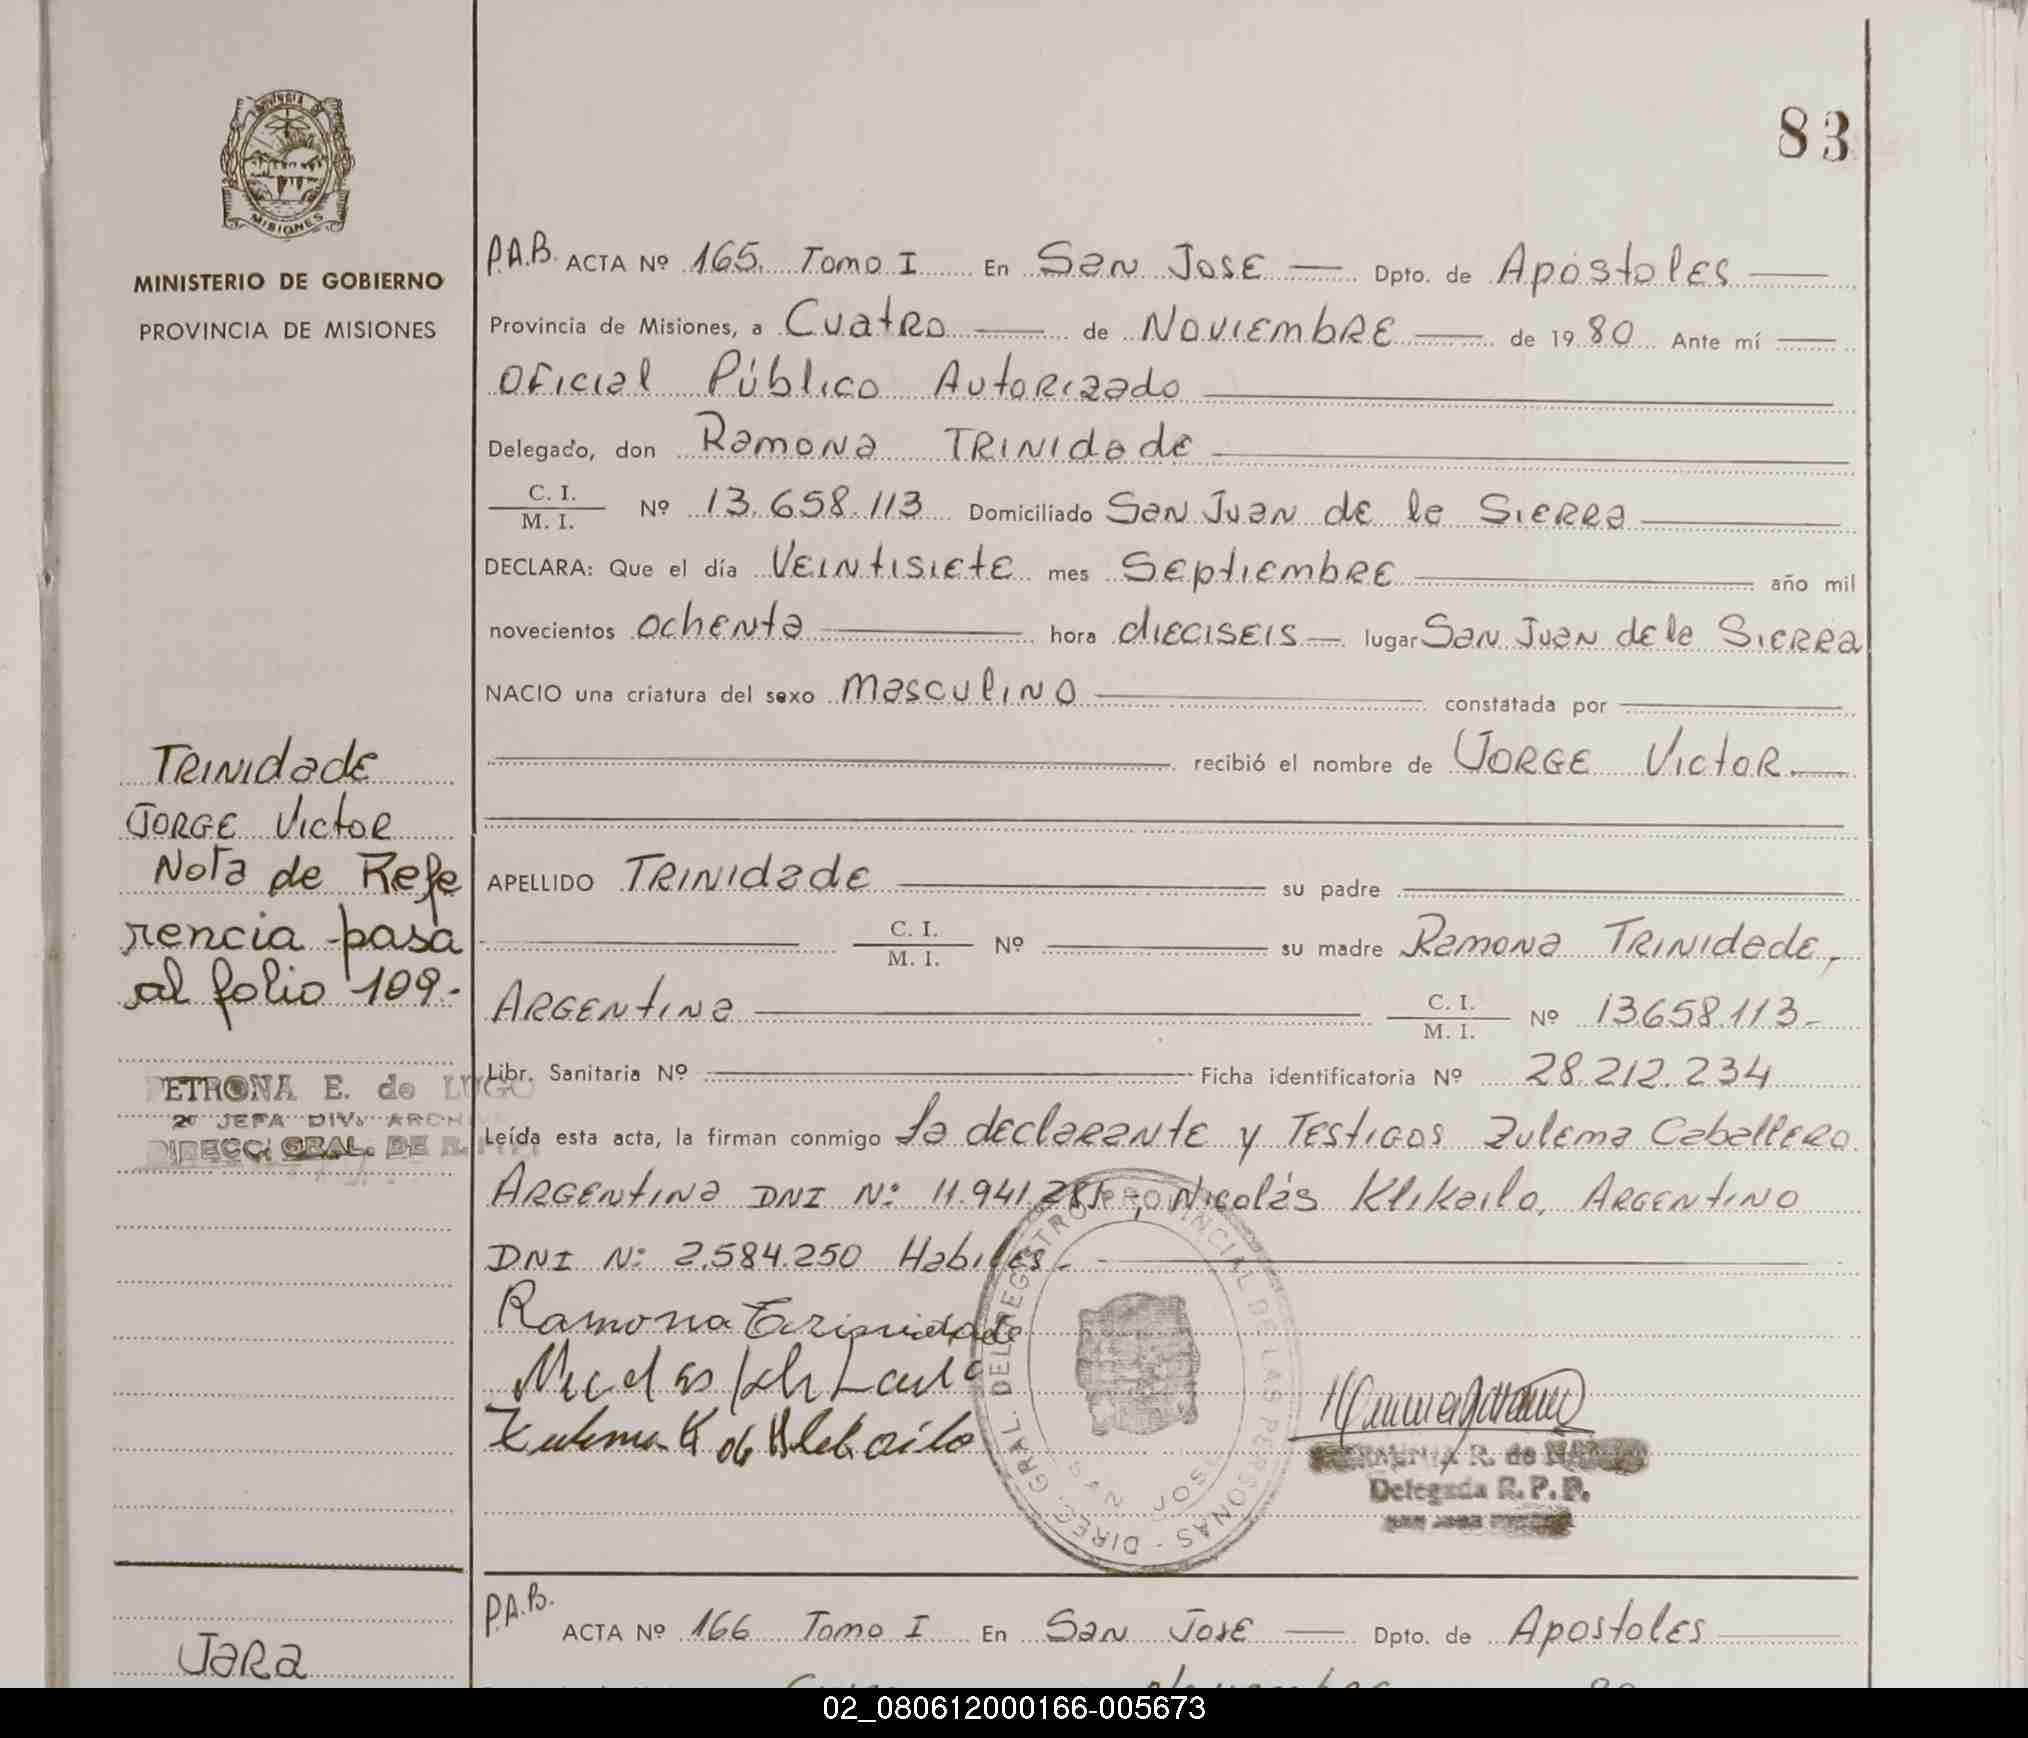 83
PROVINCIA DE
MISIONES
MINISTERIO DE GOBIERNO
PROVINCIA DE MISIONES
P.A.B. ACTA Nº 165. Tomo I En San Jose — Dpto. de Apóstoles —
Provincia de Misiones, a Cuatro — de Noviembre — de 1980 Ante mí —
Oficial Público Autorizado —
Delegado, don Ramona Trinidade —
C. I.
M. I. Nº 13.658.113 Domiciliado San Juan de la Sierra —
DECLARA: Que el día Veintisiete mes Septiembre — año mil
novecientos ochenta — hora dieciseis — lugar San Juan de la Sierra
NACIO una criatura del sexo masculino — constatada por —
— recibió el nombre de Jorge Victor. —
APELLIDO Trinidade — su padre —
— C. I.
M. I. Nº — su madre Ramona Trinidade,
Argentina — C. I.
M. I. Nº 13.658.113-
Libr. Sanitaria Nº — Ficha identificatoria Nº 28.212.234
Leída esta acta, la firman conmigo la declarante y Testigos Zulema Caballero.
Argentina DNI Nº 11.941.281 -; Nicolás Klikailo, Argentino
DNI Nº 2.584.250 Habiles. —
Ramona Trinidade
Zulema K de Klikailo
DIREC. GRAL. DEL REGISTRO PROVINCIAL DE LAS PERSONAS -
SAN JOSE
R. de
Delegada R.P.P.
Trinidade
Jorge Victor
Nota de Refe
rencia pasa
al folio 109.-
PETRONA E. de LUGO
2º JEFA DIV. ARCH
DIRECC. GRAL. DE R.
P.A.B. ACTA Nº 166 Tomo I En San Jose — Dpto. de Apostoles —
Jara
02_080612000166-005673